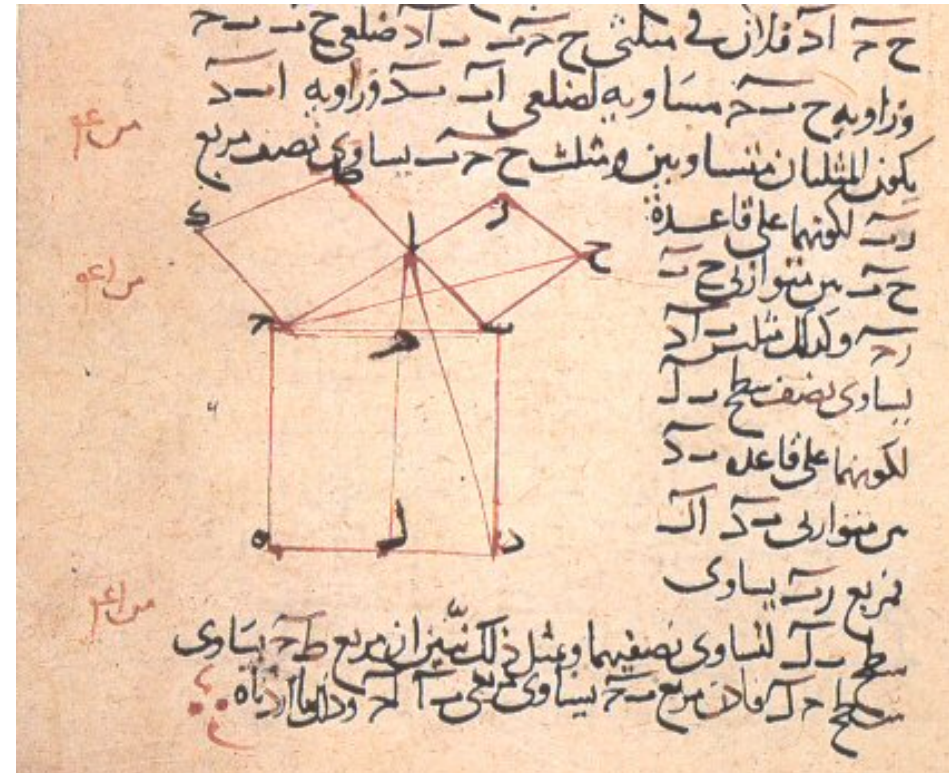 ح حـ ا د فلان في مثلثي ح حـ ب ب ا د ضلعي ح ب ب حـ
وزاويه ح ب حـ مساويه لضلعي ا ب ب د وزاويه ا ب د
يكون المثلثان متساويين ومثلث ح حـ ب يساوي نصف مربع
ر ب لكونهما على قاعدة
ح ب بين متوازيي ح ب
ر حـ وكذلك مثلث ب ا د
يساوى نصف سطح ب ل
لكونهما على قاعده ب د
بين متوازيى ب د ا ل
فمربع ر ب يساوى
سطح ب ل لتساوى نصفيهما وبمثل ذلك نبين ان مربع ط حـ يساوى
سطح حـ ل فاذن مربع ب حـ يساوى مربعي ب ا ا حـ وذلك ما اردناه
ط
ى
ا
ر
ح
حـ
ب
ه
ل
د